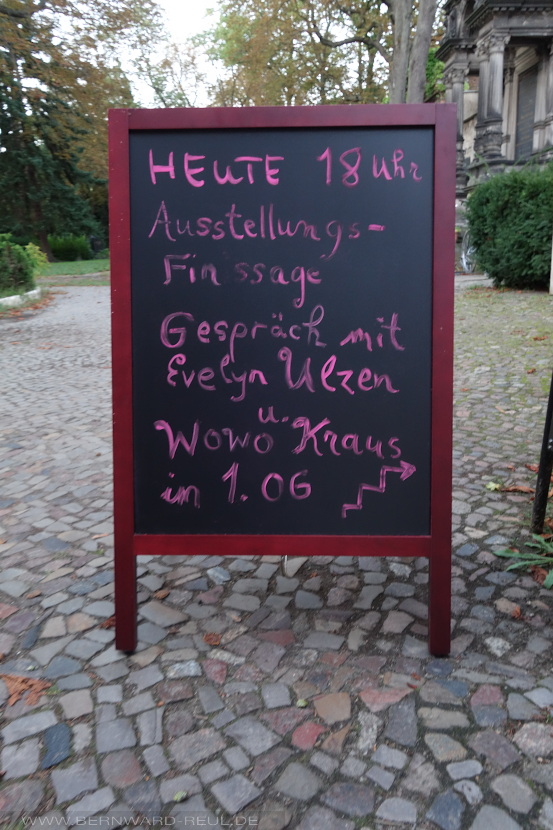 HEUTE 18 Uhr
Ausstellungs-
Finissage
Gespräch mit
Evelyn Ulzen
u.
Wowo Kraus
im 1. OG
WWW.BERNWARD-REUL.DE